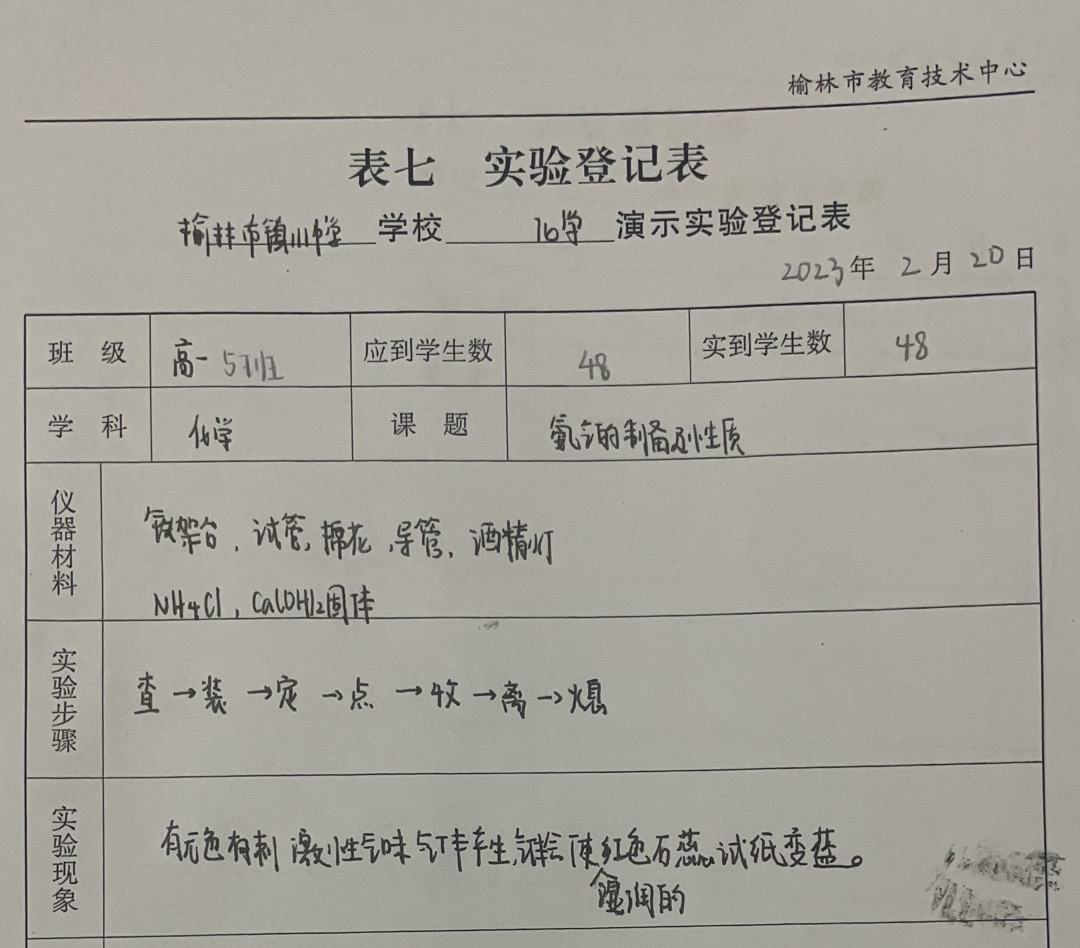 榆林市教育技术中心
表七 实验登记表
榆林市镇川中学 学校 化学 演示实验登记表
2023年 2月 20日
班 级 高一 5班 应到学生数 48 实到学生数 48
学 科 化学 课 题 氨气的制备及性质
仪器材料 铁架台,试管,棉花,导管,酒精灯
NH4Cl,Ca(OH)2固体
实验步骤 查→装→定→点→收→离→熄
实验现象 有无色有刺激性气味气体产生,气体能使红色石蕊试纸变蓝。
湿润的